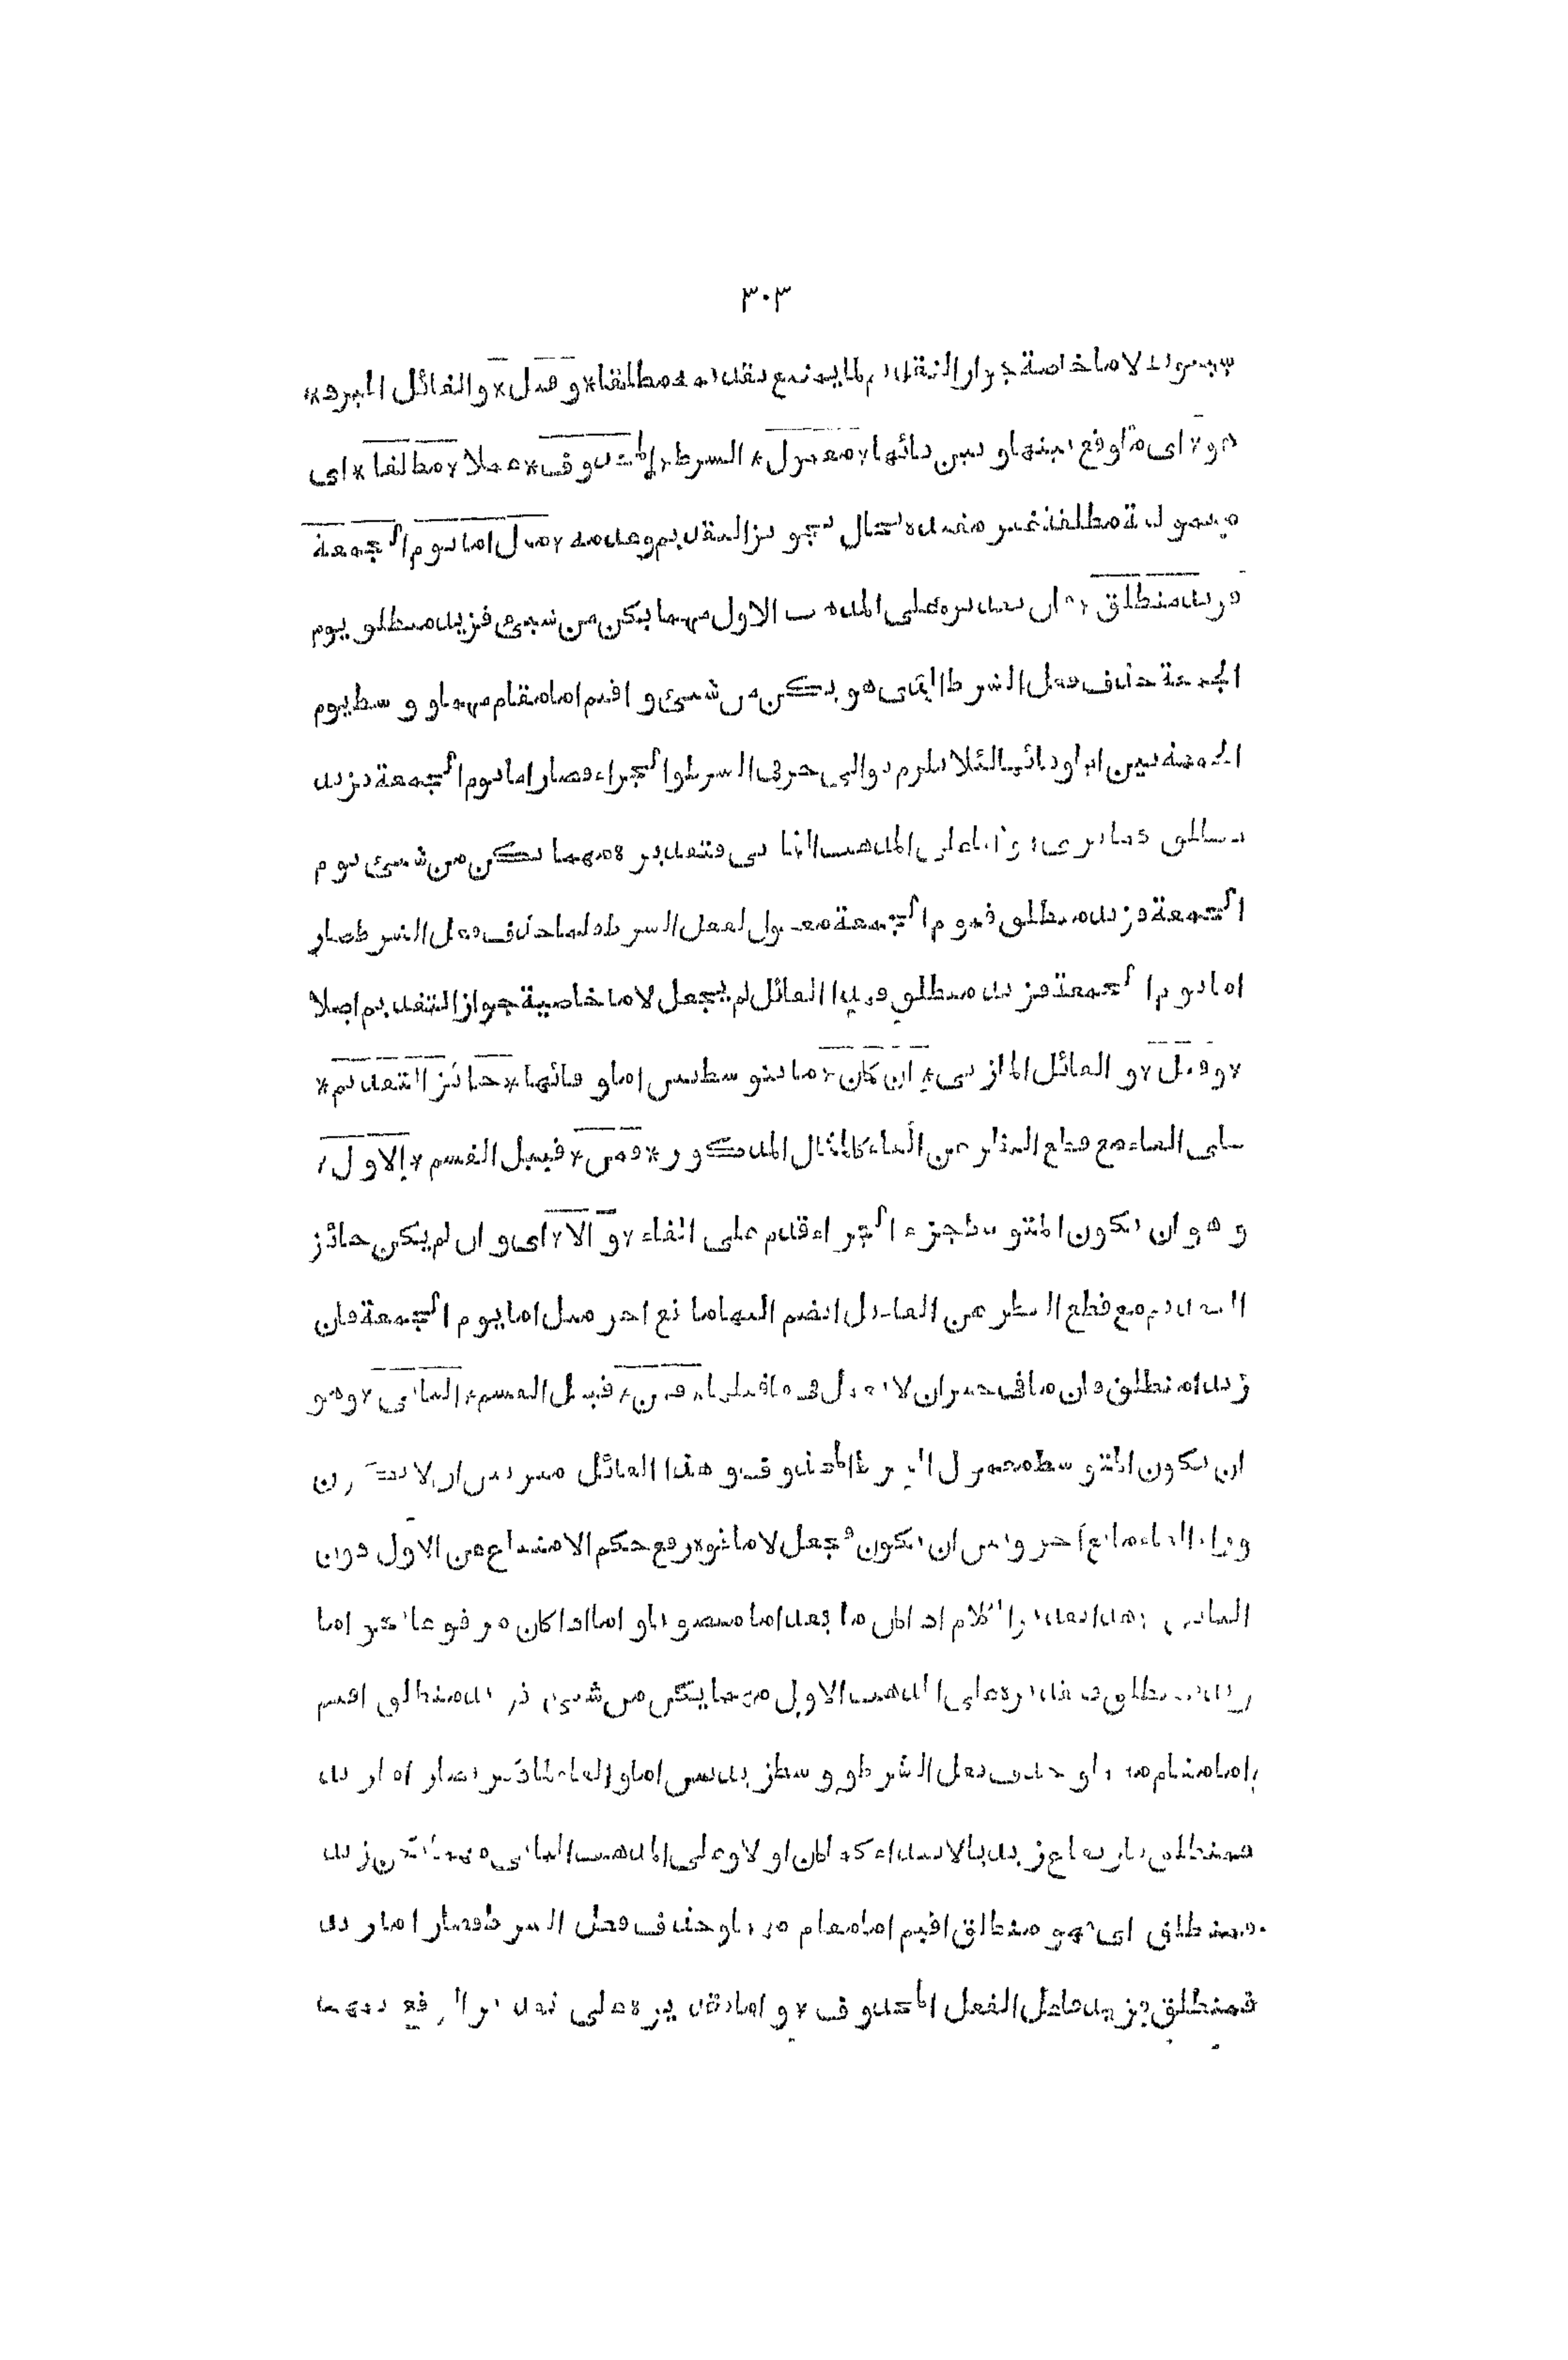 ٣٠٣
سيبويه لاما خاصة جواز التقديم لما يمتنع تقديمه مطلقا * وقيل * والقائل المبرد *
هو * اى ما وقع بينها و بين فائها * معمول * الشرط المحذوف * عملا * مطلقا * اى
معمولية مطلقة غير مقيدة بحال تجويز التقديم وعدمه * مثل اما يوم الجمعة
فزيد منطلق * فان تقديره على المذهب الاول مهما يكن من شىء فزيد منطلق يوم
الجمعة حذف فعل الشرط الذى هو يكن من شىء و اقيم اما مقام مهما و وسط يوم
الجمعة بين اما و فائها لئلا يلزم توالى حرفى الشرط والجزاء فصار اما يوم الجمعة فزيد
منطلق كما ترى و اما على المذهب الثانى فتقديره مهما يكن من شىء يوم
الجمعة فزيد منطلق فيوم الجمعة معمول لفعل الشرط فلما حذف فعل الشرط صار
اما يوم الجمعة فزيد منطلق وهذا القائل لم يجعل لاما خاصية جواز التقديم اصلا
* وقيل * و القائل المازنى * ان كان * ما يتوسط بين اما و فائها * جائز التقديم *
على الفاء مع قطع النظر عن الفاء كالمثال المذكور * فمن * قبيل القسم * الاول *
و هو ان يكون المتوسط جزء الجزاء قدم على الفاء * و الا * اى و ان لم يكن جائز
التقديم مع قطع النظر عن الفاء بل انضم اليها مانع اخر مثل اما يوم الجمعة فان
زيدا منطلق فان ما فى حيز ان لا يعمل فى ما قبلها * فمن * قبيل القسم * الثانى * وهو
ان يكون المتوسط معمول الشرط المحذوف و هذا القائل ميز بين ان لا يكون
وراء الفاء مانع آخر و بين ان يكون فجعل لاما قوة رفع حكم الامتناع عن الاول دون
الثانى هذا تقدير الكلام اذا كان ما بعد اما منصوبا و اما اذا كان مرفوعا نحو اما
زيد فمنطلق فتقديره على المذهب الاول مهما يكن من شىء فزيد منطلق اقيم
اما مقام مهما و حذف فعل الشرط و وسط زيد بين اما و الفاء لما ذكر فصار اما زيد
فمنطلق فارتفاع زيد بالابتداء كما كان اولا وعلى المذهب الثانى مهما يكن زيد
فمنطلق اى فهو منطلق اقيم اما مقام مهما و حذف فعل الشرط فصار اما زيد
فمنطلق فزيد فاعل الفعل المحذوف * و اما تقديره على تقدير الرفع بمهما